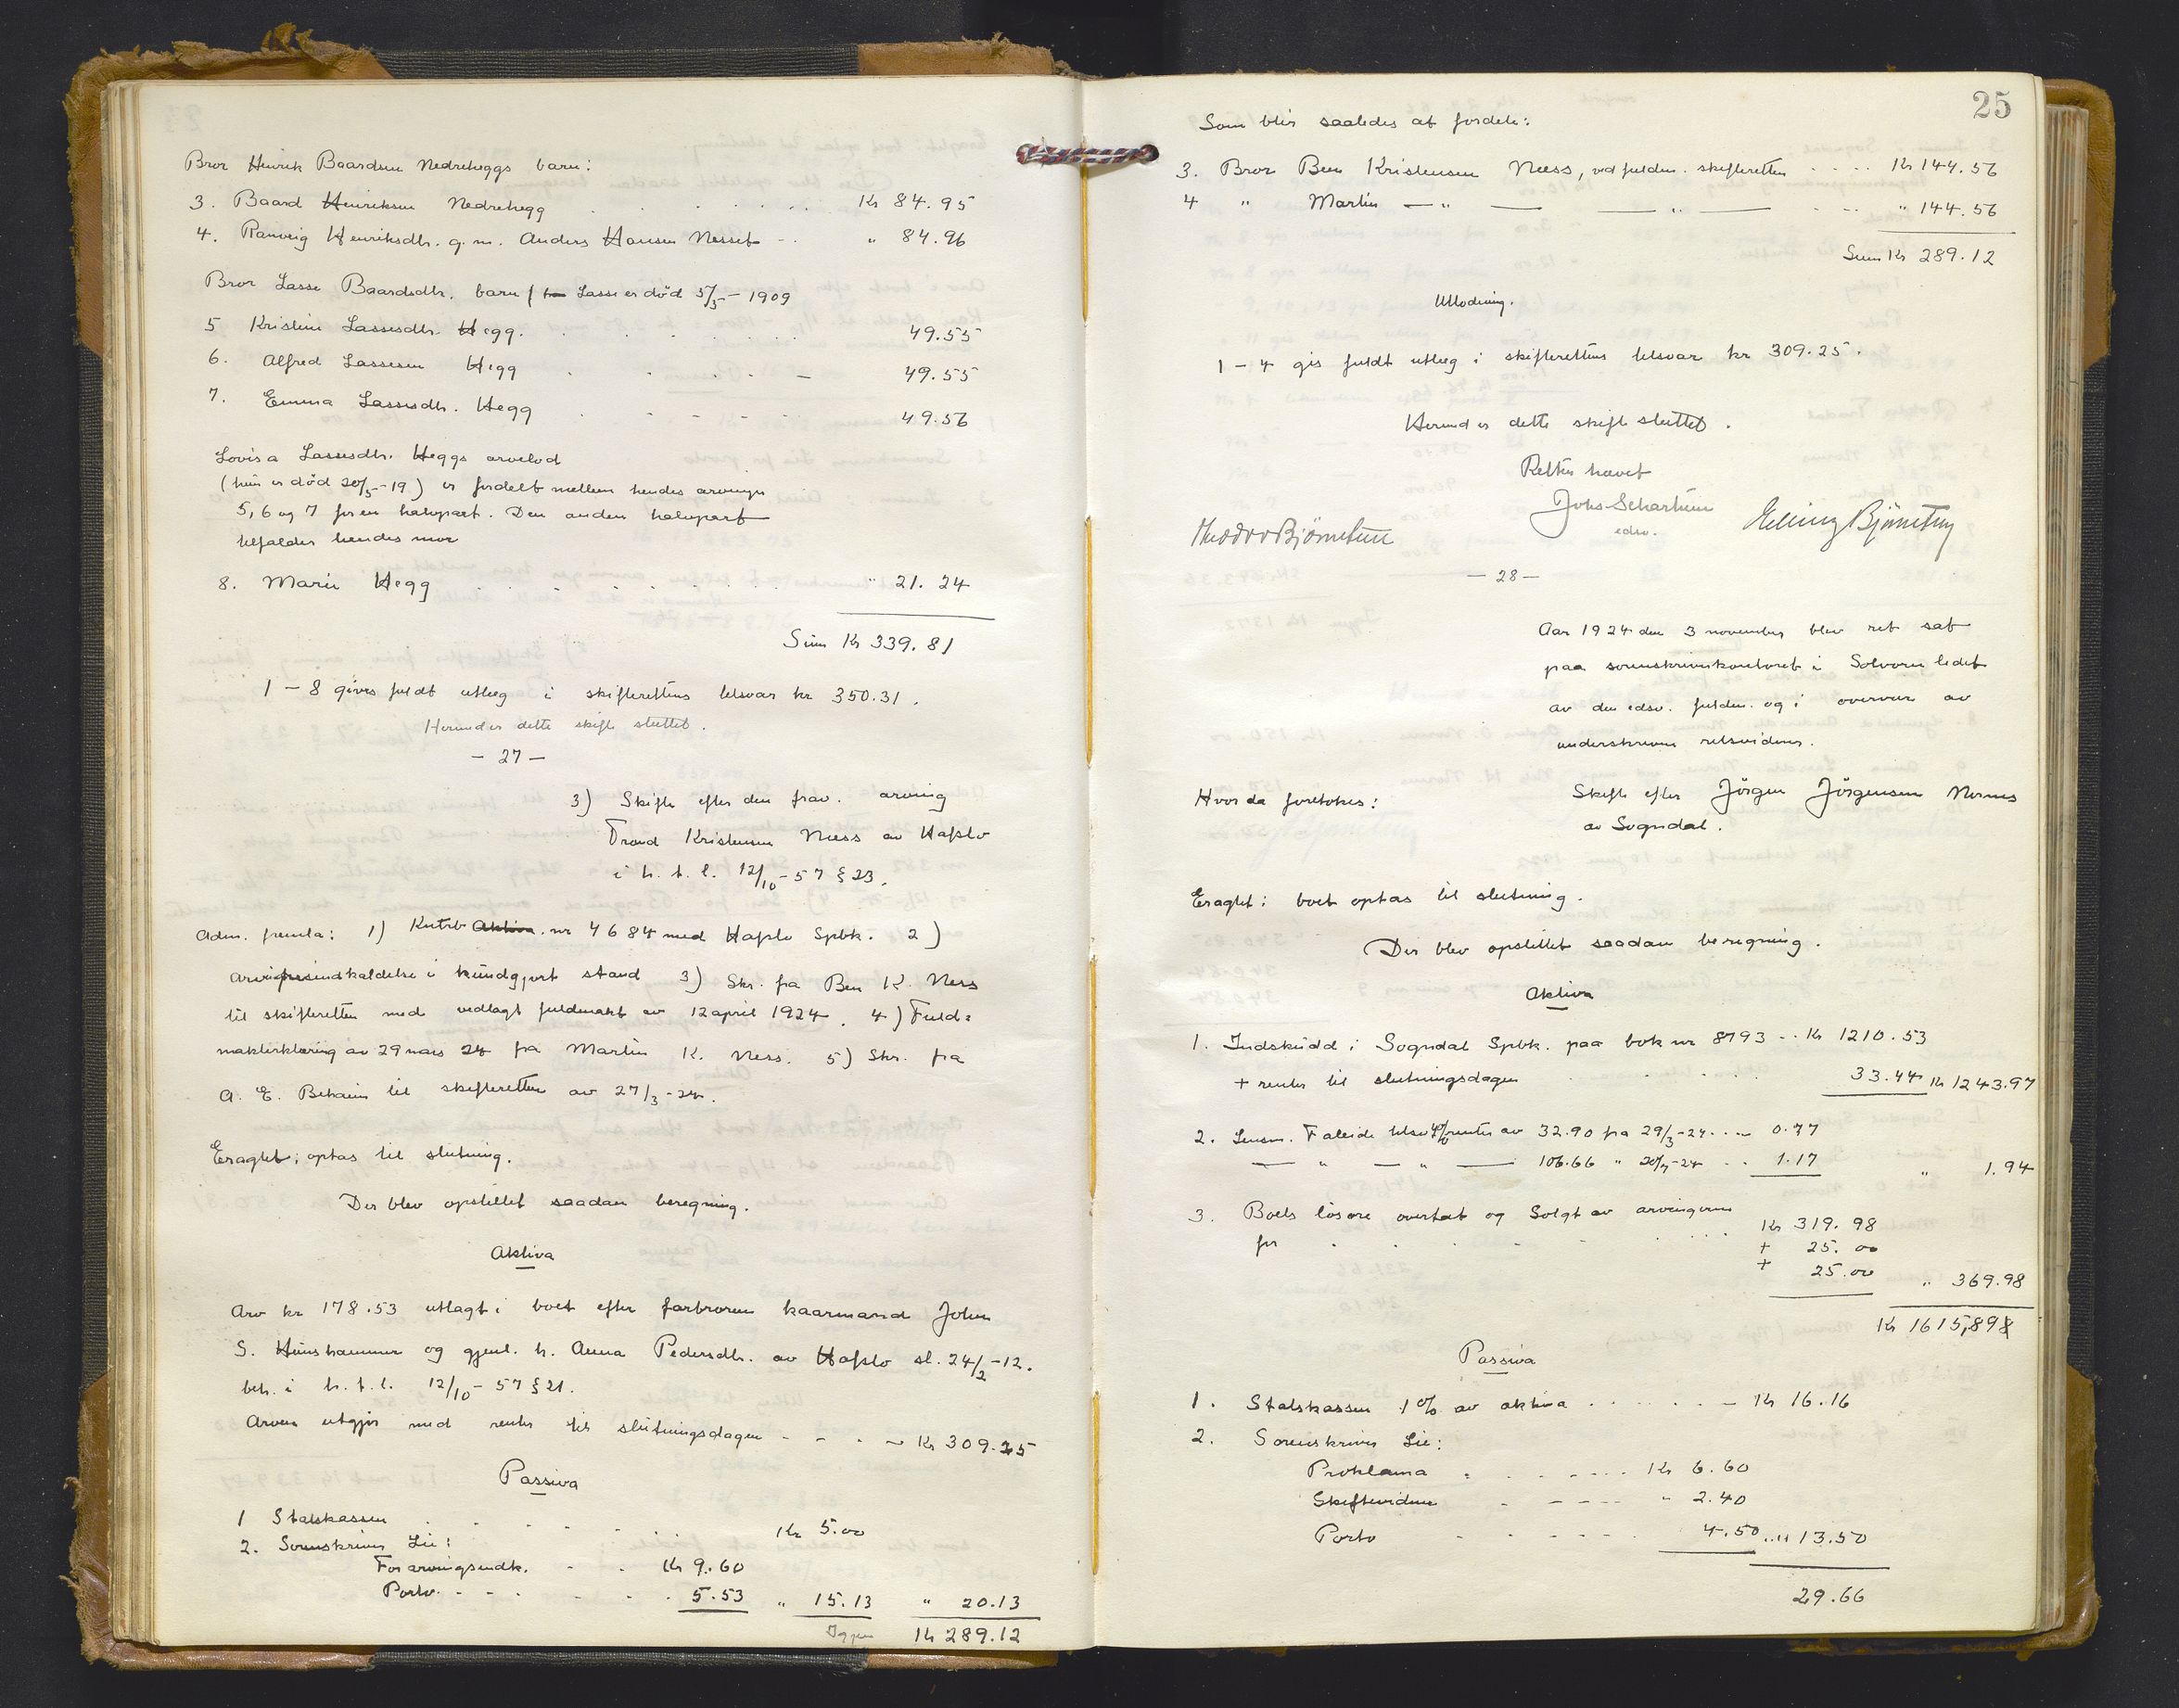 Bror Henrik Baardsen Nedreheggs barn:
3. Baard Henriksen Nedrehegg . . . . . . Kr 84.95
4. Ranveig Henriksdtr. g.m. Anders Hansen Nesset - . " 84.96
Bror Lasse Baardsdtr. barn (Lasse er död 5/5-1909
5 Kristine Lassesdtr. Hegg. . . . . 49.55
6. Alfred Lassesen Hegg . . . . - 49.55
7. Emma Lassesdtr. Hegg . - - - - 49.56
Lovisa Lassesdtr. Heggs arvelod
(hun er död 20/5-19) er fordelt mellem hendes arvinger
5, 6 og 7 for en halvpart. Den anden halvpart
tilfalder hendes mor
8. Marie Hegg . . . . . . " 21.24
Sum Kr 339.81
1 - 8 gives fuldt utlæg i skifterettens telsvar kr 350.31.
Hermed er dette skifte sluttet.
- 27 -
3) Skifte efter den frav. arving
Trond Kristensen Næss av Hafslo
i h. t. l. 12/10-57 § 23.
Adm. fremla: 1) Kntrb Aktiva. nr 4684 med Hafslo Spbk. 2)
arvingsindkaldelse i kundgjort stand 3) Skr. fra Ben K. Ness
til skifteretten med vedlagt fuldmakt av 12 april 1924. 4) Fuld=
makterklæring av 29 mars 24 fra Martin K. Ness. 5) Skr. fra
A. E. Beheim til skifteretten av 27/3-24.
Eragtet; optas til slutning.
Der blev opstillet saadan beregning.
Aktiva
Arv kr 178.53 utlagt i boet efter farbroren kaarmand John
S. Hunshammer og gjenl. h. Anna Pedersdtr. av Hafslo sl. 24/2-12.
beh. i h. t. l. 12/10-57 § 21.
Arven utgjör med renter til slutningsdagen - - . - Kr 309.25
Passiva
1 Statskassen . . . . . . Kr 5.00
2. Sorenskriver Lie:
For arvingsindk. - . Kr 9.60
Porto. - - . - . . 5.53 " 15.13 " 20.13
Igjen Kr 289.12
25
Som blir saaledes at fordele:
3. Bror Ben Kristensen Næss, ved fuldm. skifteretten . . . . Kr 144.56
4 " Martin — " — — " — . . . " 144.56
Sum Kr 289.12
Utlodning.
1 - 4 gis fuldt utlæg i skifterettens telsvar kr 309.25.
Hermed er dette skifte sluttet.
Retten hævet
Johs Schartum
edsv.
Theodor Bjørnetun Elling Bjørnetun
- 28 -
Aar 1924 den 3 november blev ret sat
paa sorenskriverkontoret i Solvorn ledet
av den edsv. fuldm. og i overvær av
underskrevne retsvidner.
Hvor da foretokes: Skifte efter Jörgen Jörgensen Nornes
av Sogndal.
Eragtet: boet optas til slutning.
Der blev opstillet saadan beregning.
Aktiva
1. Indskudd i Sogndal Spbk. paa bok nr 8793 - . Kr 1210.53
+ renter til slutningsdagen . . . . 33.44 Kr 1243.97
2. Lensm. Faleide telsv 4% renter av 32.90 fra 29/3-24 . . . - 0.77
— " — " — 106.66 " 20/7-24 . . 1.17 " 1.94
3. Boets lösöre overtat og solgt av arvingerne
for . . . . . . . . Kr 319.98
+ 25.00
+ 25.00 " 369.98
Kr 1615,89
Passiva
1. Statskassen 1% av aktiva . . . . . - Kr 16.16
2. Sorenskriver Lie:
Proklama . . . . . . Kr 6.60
Skiftevidner . - - - - " 2.40
Porto . - . . . . 4.50 . . " 13.50
29.66